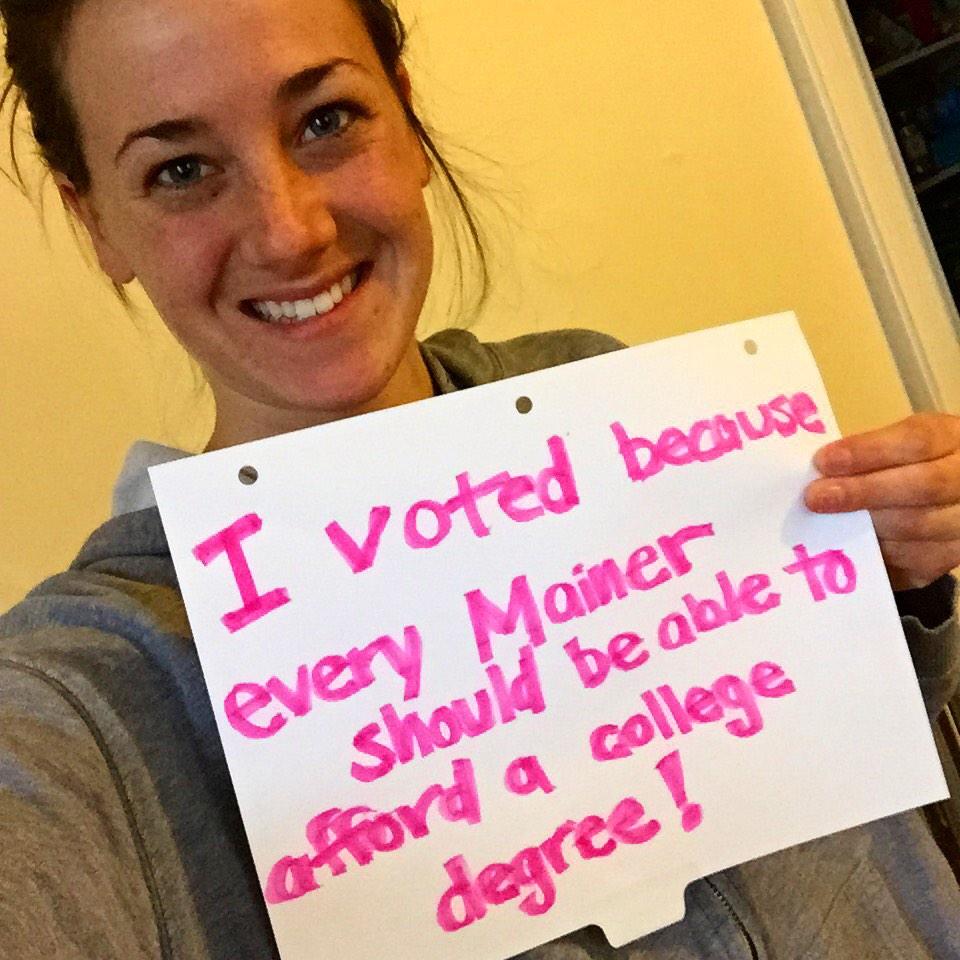 I voted because
every Mainer
should be able to
afford a college
degree!